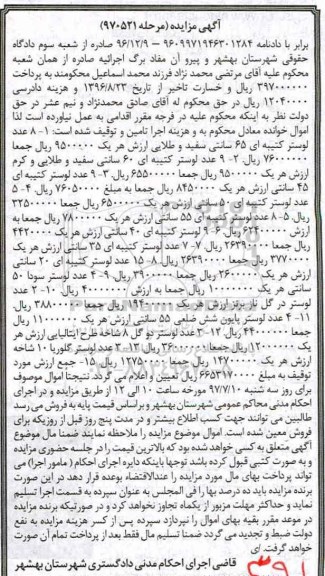 آگهی مزایده (مرحله ۹۷۰۵۲۱)
برابر با دادنامه ۹۶۰۹۹۷۱۹۴۶۳۰۱۲۸۴ – ۹۶/۱۲/۹ صادره از شعبه سوم دادگاه
حقوقی شهرستان بهشهر و پیرو آن مفاد برگ اجرائیه صادره از همان شعبه
محکوم علیه آقای مرتضی محمد نژاد فرزند محمد اسماعیل محکومند به پرداخت
۳۹۷۰۰۰۰۰۰ ریال و خسارت تاخیر از تاریخ ۱۳۹۶/۸/۲۳ و هزینه دادرسی
۱۲۰۴۰۰۰۰ ریال در حق محکوم له آقای صادق محمدنژاد و نیم عشر در حق
دولت نظر به اینکه محکوم علیه در فرجه مقرر اقدامی به عمل نیاورده است لذا
اموال خوانده معادل محکوم به و هزینه اجرا تامین و توقیف شده است: ۱- ۸ عدد
لوستر کتیبه ای ۶۵ سانتی سفید و طلایی ارزش هر یک ۹۵۰۰۰۰۰ ریال جمعا
۷۶۰۰۰۰۰۰ ریال. ۲- ۹ عدد لوستر کتیبه ای ۶۰ سانتی سفید و طلایی و کرم
ارزش هر یک ۹۵۰۰۰۰۰ ریال جمعا ۶۵۵۰۰۰۰۰ ریال. ۳- ۹ عدد لوستر کتیبه ای
۴۵ سانتی ارزش هر یک ۸۴۵۰۰۰۰ ریال جمعا به مبلغ ۷۶۰۵۰۰۰۰ ریال. ۴- ۵
عدد لوستر کتیبه ای ۵۰ سانتی ارزش هر یک ۶۵۰۰۰۰۰ ریال جمعا ۳۲۵۰۰۰۰۰
ریال. ۵- ۸ عدد لوستر کتیبه ای ۵۵ سانتی ارزش هر یک ۷۸۰۰۰۰۰ ریال جمعا به
ارزش ۶۲۴۰۰۰۰۰ ریال. ۶- ۹ لوستر کتیبه ای ۴۰ سانتی ارزش هر یک ۴۴۲۰۰۰۰
ریال جمعا ۲۶۳۹۰۰۰۰ ریال. ۷- ۷ عدد لوستر کتیبه ای ۳۵ سانتی ارزش هر یک
۳۷۷۰۰۰۰ ریال جمعا ۲۶۳۹۰۰۰۰ ریال. ۸- ۱۵ عدد لوستر کتیبه ای ۲۰ سانتی
ارزش هر یک ۲۶۰۰۰۰۰ ریال جمعا ۳۹۰۰۰۰۰۰ ریال. ۹- ۴ عدد لوستر سودا ۵۰
سانتی هر یک ۱۰۰۰۰۰۰۰ ریال جمعا به ارزش ۴۰۰۰۰۰۰۰ ریال. ۱۰- ۲ عدد
لوستر در گل ناز برنز ارزش هر یک ۱۹۴۰۰۰۰۰ ریال جمعا ۳۸۸۰۰۰۰۰ ریال.
۱۱- ۴ عدد لوستر پایون شش ضلعی ۵۵ سانتی ارزش هر یک ۱۱۰۰۰۰۰۰ ریال
جمعا ۴۴۰۰۰۰۰۰ ریال. ۱۲- ۳ عدد لوستر دو گل ۸ شاخه طرح ایتالیایی ارزش هر
یک ۱۲۰۰۰۰۰۰ ریال جمعا ۳۶۰۰۰۰۰۰ ریال. ۱۳- ۳ عدد لوستر گلوریا ۱۰ شاخه
ارزش هر یک ۱۴۷۰۰۰۰۰ ریال جمعا ریال. ۱۵- جمع ارزش مورد
توقیف به مبلغ ۶۶۵۳۱۷۰۰۰ ریال تعیین و اعلام می گردد. نتیجتا اموال موصوف
برای روز سه شنبه ۹۷/۷/۱۰ مورخه ساعت ۱۰ الی ۱۲ از طریق مزایده و در اجرای
احکام مدنی محاکم عمومی شهرستان بهشهر و براساس قیمت پایه به فروش می رسد
طالبین می توانند جهت کسب اطلاع بیشتر و در مدت پنج روز قبل از روزیکه برای
فروش معین شده است. اموال موضوع مزایده را ملاحظه نمایند ضمنا مال موضوع
آگهی متعلق به کسی خواهد شد بوده که بالاترین قیمت را در جلسه حضوری مزایده
و به صورت کتبی قبول کرده باشد توجها باینکه دایره اجرای احکام (مامور اجرا) می
تواند پرداخت بهای مال مورد مزایده را عندالاقتضاء بوعده قرار دهد در این صورت
برنده مزایده باید ده درصد بها را فی المجلس به عنوان سپرده به قسمت اجرا تسلیم
نماید و حداکثر مهلت مزبور از یکماه تجاوز نخواهد کرد و در صورتیکه برنده مزایده
در موعد مقرر بقیه بهای اموال را نپردازد سپرده پس از کسر هزینه مزایده به نفع
دولت ضبط و تجدید می گردد ضمنا تسلیم مال فقط بعد از پرداخت تمام آن صورت
خواهد گرفت. ای
قاضی اجرای احکام مدنی دادگستری شهرستان بهشهر